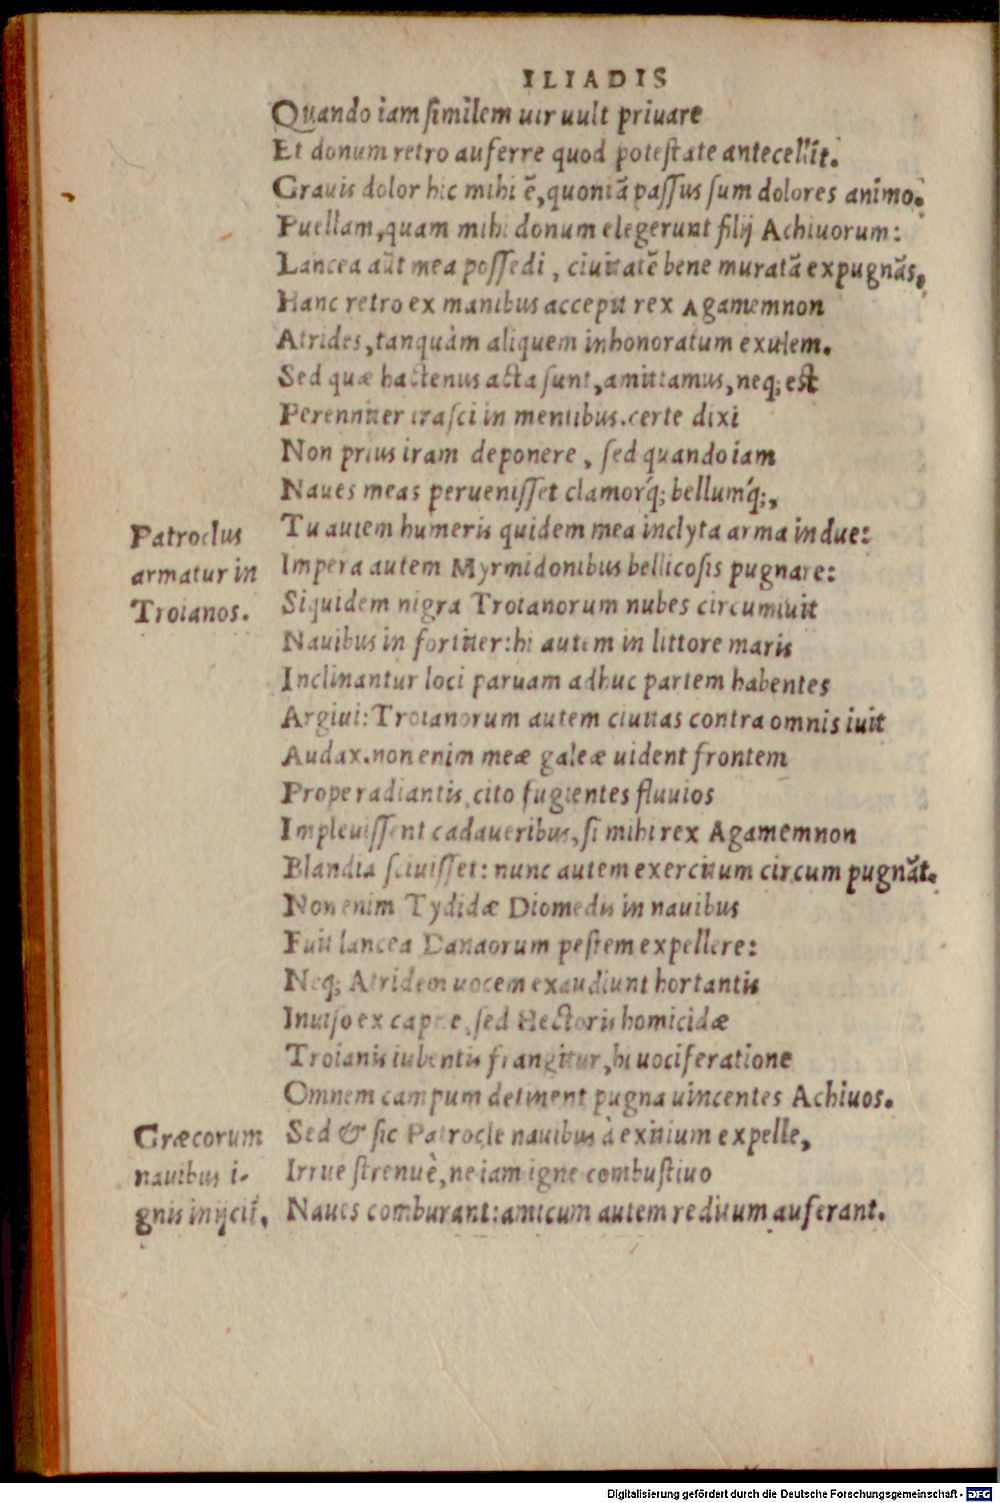 ILIADIS
Quando iam ſimilem uir uult priuare
Et donum retro auferre quod poteſtate antecellit.
Grauis dolor hic mihi ē, quoniā paſſus ſum dolores animo.
Puellam, quam mihi donum elegerunt filij Achiuorum:
Lancea aūt mea poſſedi, ciuitatē bene muratā expugnās,
Hanc retro ex manibus accepit rex Agamemnon
Atrides, tanquàm aliquem inhonoratum exulem.
Sed quæ hactenus acta ſunt, amittamus, neq; eſt
Perenniter iraſci in mentibus. certe dixi
Non prius iram deponere, ſed quando iam
Naues meas perueniſſet clamorq́; bellumq́;,
Patroclus
armatur in
Troianos.
Tu autem humeris quidem mea inclyta arma indue:
Impera autem Myrmidonibus bellicoſis pugnare:
Siquidem nigra Troianorum nubes circumiuit
Nauibus in fortiter: hi autem in littore maris
Inclinantur loci paruam adhuc partem habentes
Argiui: Troianorum autem ciuitas contra omnis iuit
Audax. non enim meæ galeæ uident frontem
Prope radiantis, cito fugientes fluuios
Impleuiſſent cadaueribus, ſi mihi rex Agamemnon
Blandia ſciuiſſet: nunc autem exercitum circum pugnāt.
Non enim Tydidæ Diomedis in nauibus
Fuit lancea Danaorum peſtem expellere:
Neq; Atridem uocem exaudiunt hortantis
Inuiſo ex capite, ſed Hectoris homicidæ
Troianis iubentis frangitur, hi uociferatione
Omnem campum detinent pugna uincentes Achiuos.
Græcorum
nauibus i-
gnis inijcit̄,
Sed & ſic Patrocle nauibus à exitium expelle,
Irrue ſtrenuè, ne iam igne combuſtiuo
Naues comburant: amicum autem reditum auferant.
Digitalisierung gefördert durch die Deutsche Forschungsgemeinschaft - DFG